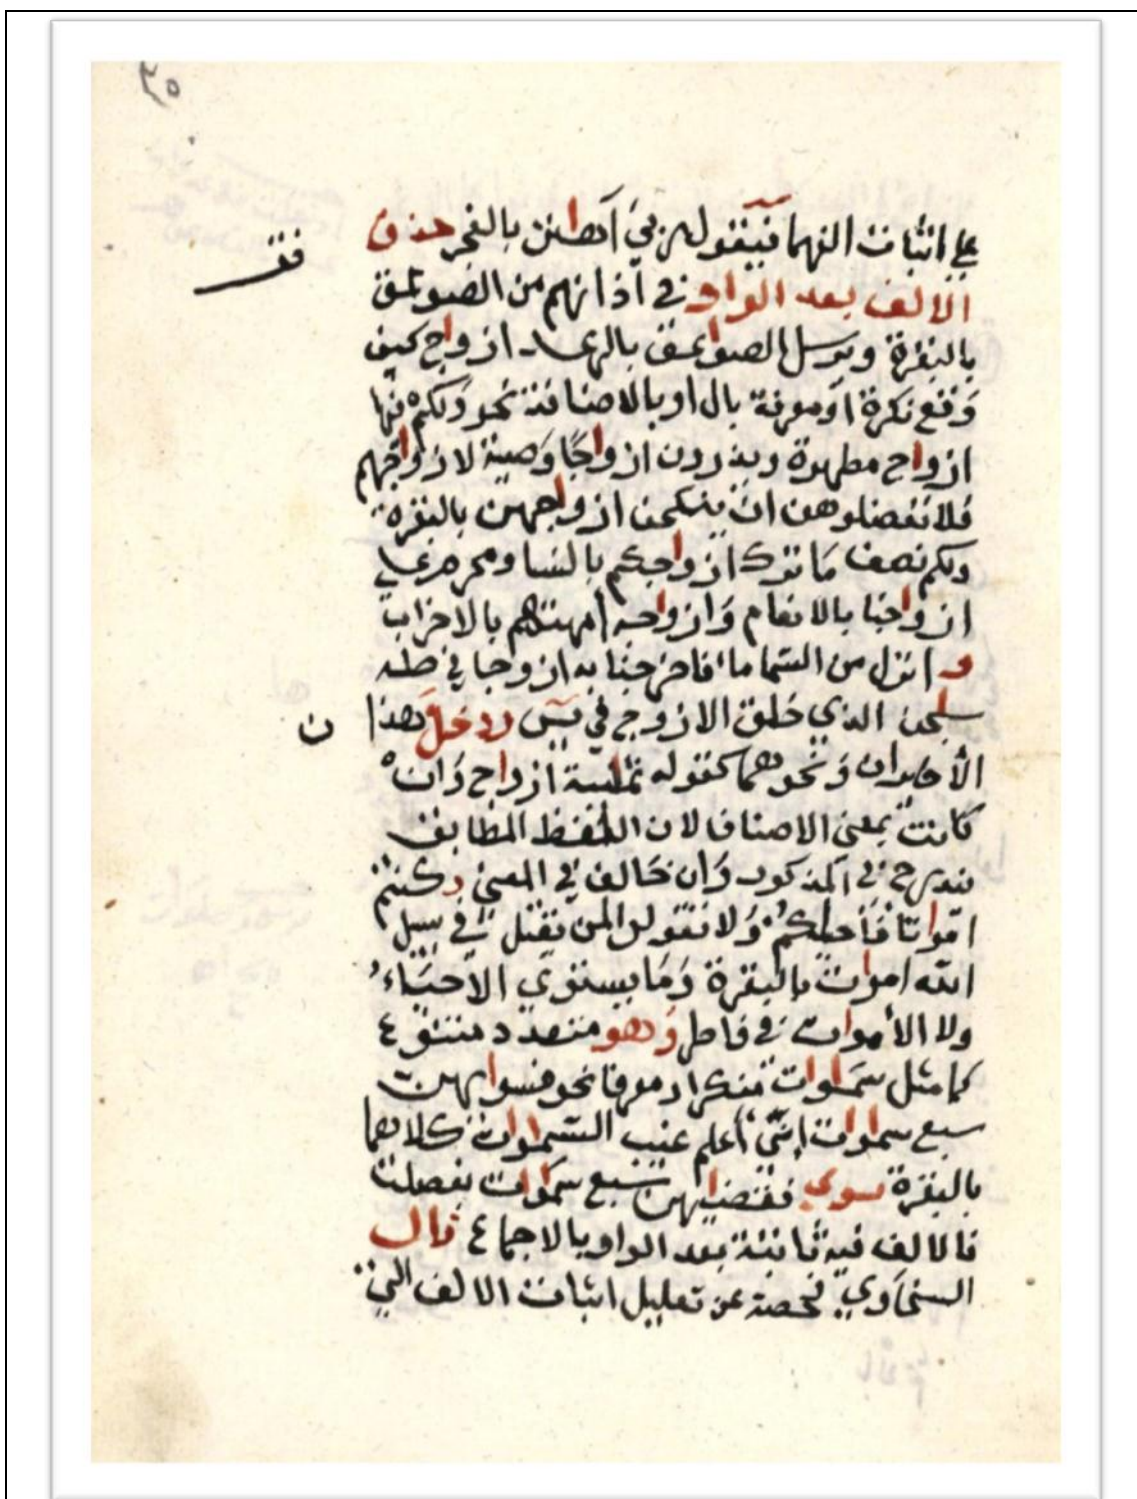 ٣٥
على اثبات النهما فيقول ربي أهانن بالفجر حذف
الالف بعد الواو في آذانهم من الصوعق
بالبقرة ويرسل الصواعق بالرعد ازواج كيف
وقع نكرة او معرفة بال او بالاضافة نحو ولكم فيها
ازواج مطهرة ويذرون ازواجًا وصية لازواجهم
فلا تعضلوهن ان ينكحن ازواجهن بالبقرة
ولكم نصف ما ترك ازواجكم بالنسا ومحرم على
ازواجنا بالانعام وازواجه امهتهم بالاحزاب
و انزل من السما ماء فاخرجنا به ازوجا في طه
سبحن الذي خلق الازوج في يس ودخل هذا
الأخيران ونحوهما كقوله ثمانية ازواج وان
كانت بمعنى الاصناف لان اللفظ المطابق
يندرج في المذكور وان خالف في المعنى وكنتم
امواتا فأحياكم ولا تقولوا لمن يقتل في سبيل
الله اموات بالبقرة وما يستوي الاحياء
ولا الأموات في فاطر وهو متعدد متنوع
كما مثل سموات منكرا ومعرفا نحو فسواهن
سبع سموات إني أعلم غيب السموات كلاهما
بالبقرة سوى فقضاهن سبع سموات بفصلت
فالالف فيه ثابتة بعد الواو بالاجماع قال
السخاوي فحصت عن تعليل اثبات الالف التي
فقـ
ن